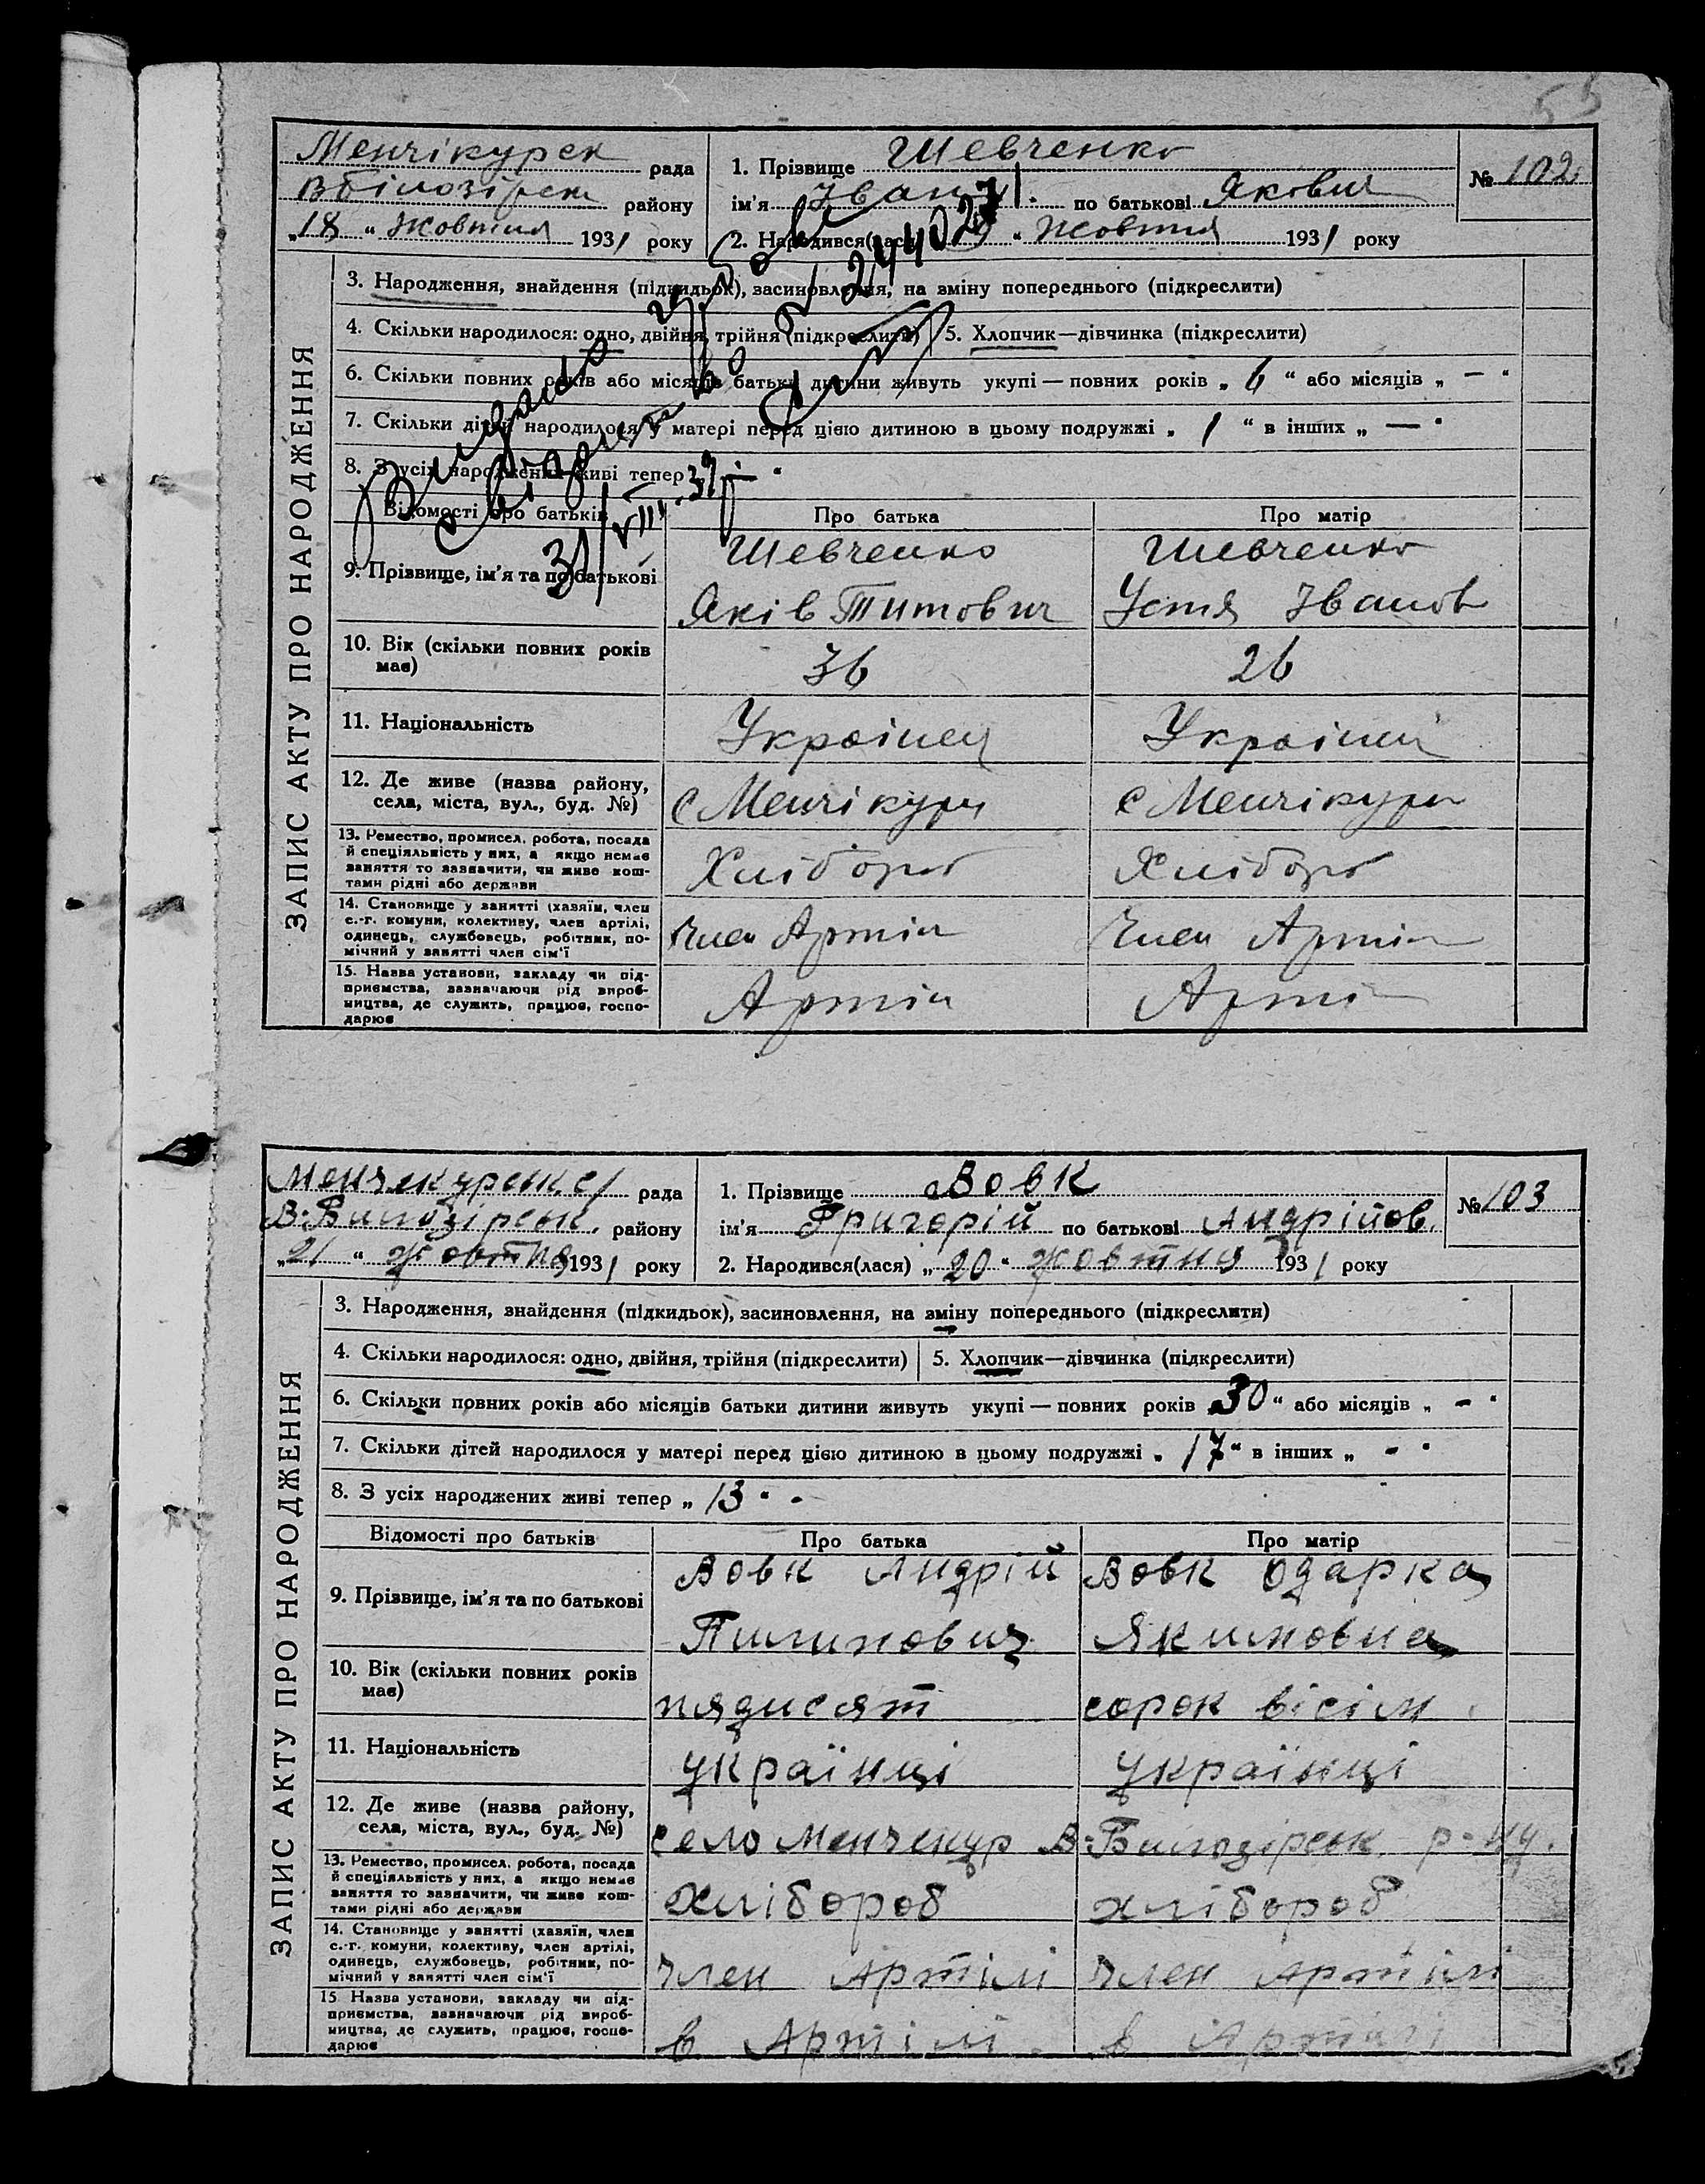 55
Менчікурск рада
Вбілозірськ району
„18“ Жовтня 1931 року
1. Прізвище Шевченко
ім'я Іван по батькові Якович
2. Народився(лася) “ Жовтня 1931 року
№ 102
ЗАПИС АКТУ ПРО НАРОДЖЕННЯ
3. Народження, знайдення (підкидьок), засиновлення, на зміну попереднього (підкреслити)
4. Скільки народилося: одно, двійня, трійня (підкреслити) 5. Хлопчик—дівчинка (підкреслити)
6. Скільки повних років або місяців батьки дитини живуть укупі — повних років „ 6 “ або місяців „ — “
7. Скільки дітей народилося у матері перед цією дитиною в цьому подружжі „ 1 “ в інших „ — “
8. З усіх народжених живі тепер
Видано
№ 244027
31/VIII-39
Відомості про батьків Про батька Про матір
9. Прізвище, ім'я та по батькові
Шевченко Шевченко
Яків Титович Устя Іванов
10. Вік (скільки повних років має) 36 26
11. Національність Українец Українец
12. Де живе (назва району, села, міста, вул., буд. №) с Менчікури с Менчікури
13. Ремество, промисел, робота, посада й спеціяльність у них, а якщо немає заняття то зазначити, чи живе коштами рідні або держави Хлібороб Хлібороб
14. Становище у занятті (хазяїн, член с.-г. комуни, колективу, член артілі, одинець, службовець, робітник, помічний у занятті член сім'ї Член Артіл Член Артіл
15. Назва установи, закладу чи підприємства, зазначаючи рід виробництва, де служить, працює, господарює Артіл Артіл
Менчекурськ. с/ рада
В-Билозірськ. району
„21“ Жовтня 1931 року
1. Прізвище Вовк
ім'я Григорій по батькові Андрійов.
2. Народився(лася) „20“ жовтня 1931 року
№ 103
ЗАПИС АКТУ ПРО НАРОДЖЕННЯ
3. Народження, знайдення (підкидьок), засиновлення, на зміну попереднього (підкреслити)
4. Скільки народилося: одно, двійня, трійня (підкреслити) 5. Хлопчик—дівчинка (підкреслити)
6. Скільки повних років або місяців батьки дитини живуть укупі — повних років „30“ або місяців „ - “
7. Скільки дітей народилося у матері перед цією дитиною в цьому подружжі „ 17 “ в інших „ - “
8. З усіх народжених живі тепер „ 13 “ -
Відомості про батьків Про батька Про матір
9. Прізвище, ім'я та по батькові
Вовк Андрій Вовк Одарка
Пилипович Якимовна
10. Вік (скільки повних років має) пядисят сорок вісім
11. Національність українці українці
12. Де живе (назва району, села, міста, вул., буд. №) село Менчекур В-Билозірськ р-ну.
13. Ремество, промисел, робота, посада й спеціяльність у них, а якщо немає заняття то зазначити, чи живе коштами рідні або держави хлібороб хлібороб
14. Становище у занятті (хазяїн, член с.-г. комуни, колективу, член артілі, одинець, службовець, робітник, помічний у занятті член сім'ї член Артілі член Артілі
15. Назва установи, закладу чи підприємства, зазначаючи рід виробництва, де служить, працює, господарює в Артілі в Артілі